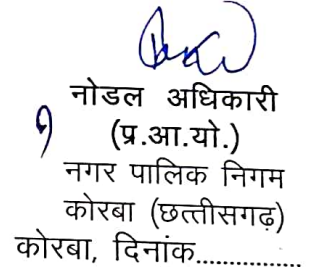 नोडल अधिकारी
(प्र.आ.यो.)
नगर पालिक निगम
कोरबा (छत्तीसगढ़)
कोरबा, दिनांक................